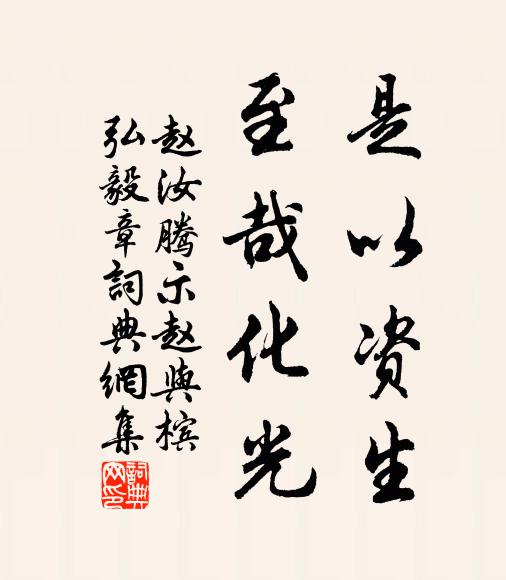 是以资生
至哉化光
赵汝腾示赵与槟
弘毅章詞典網集
詞典网印